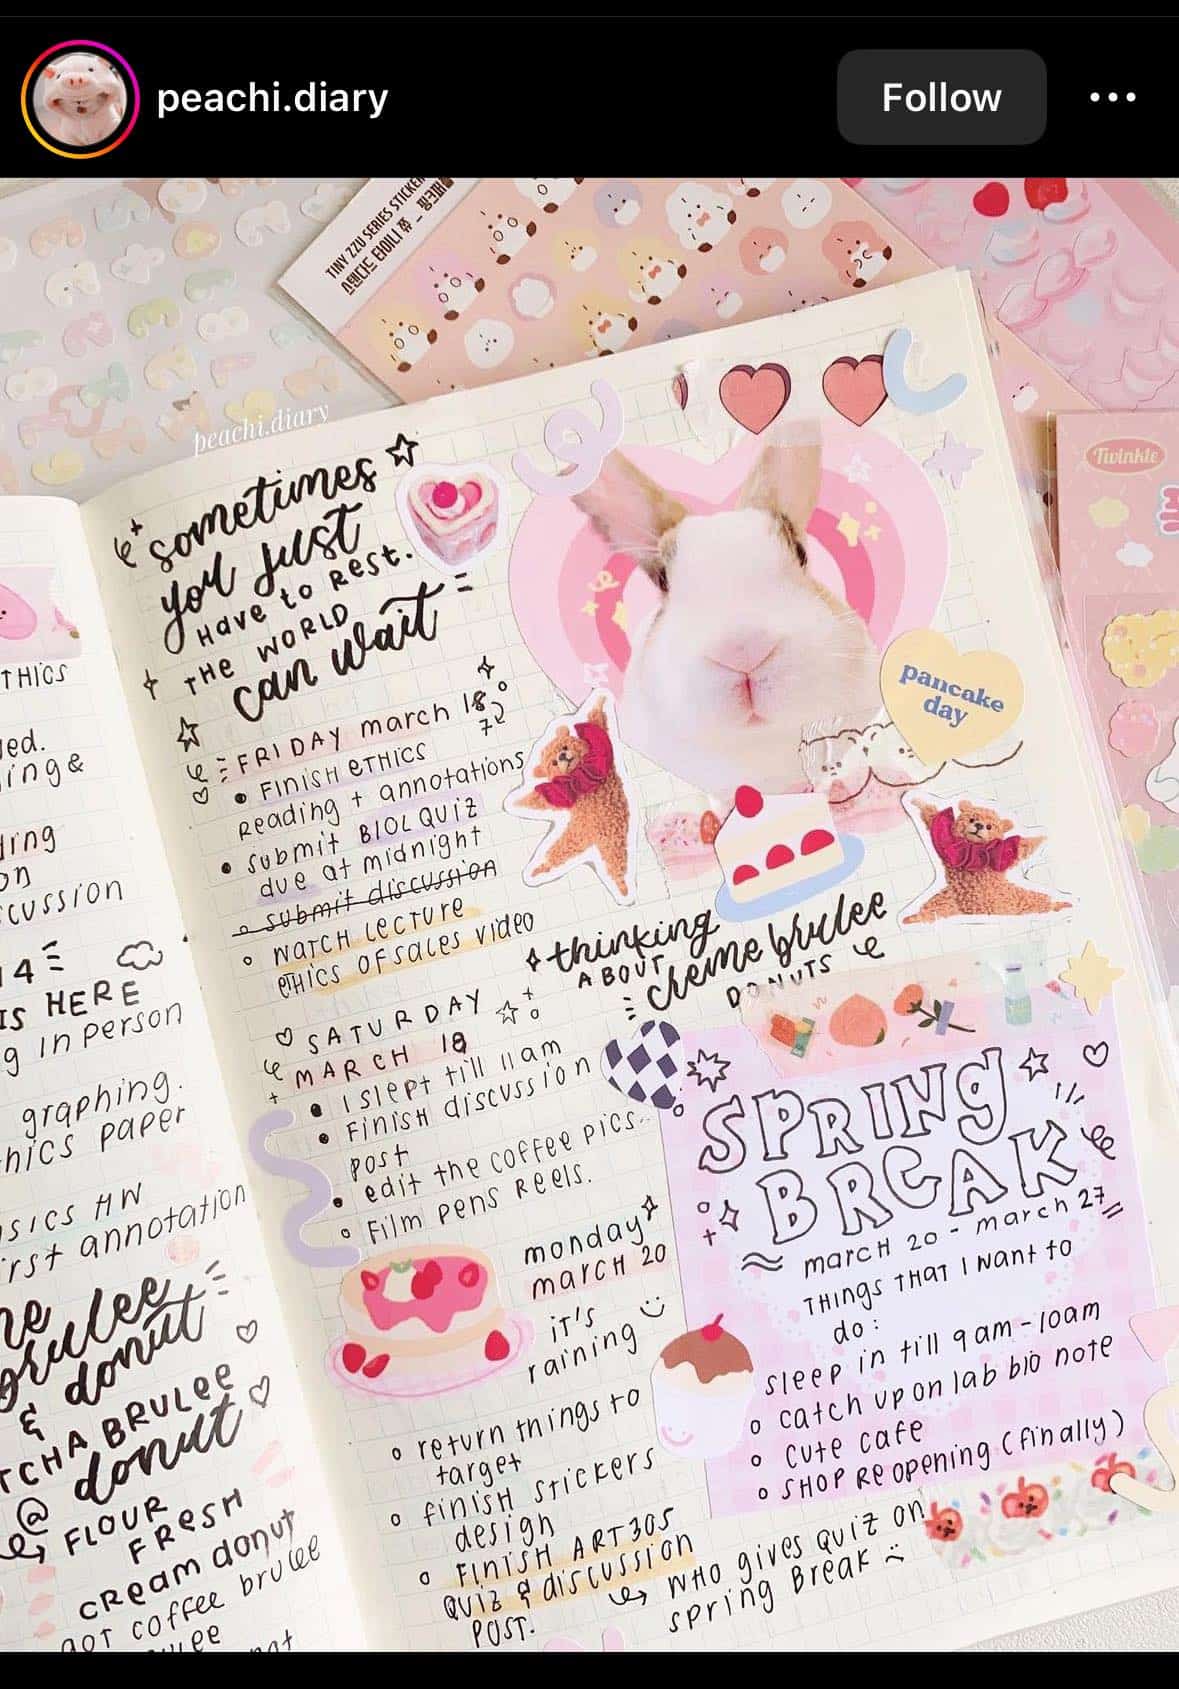 peachi.diary
Follow
TINY ZZU SERIES STICKER
peachi.diary
Twinkle
sometimes
you just
Have to Rest.
THE WORLD
can wait
FRIDAY march 18
• FINISH ETHICS
Reading + annotations
• Submit BIOL QUIZ
due at midnight
submit discussion
WATCH LECTURE
ETHICS OF SALES VIDEO
SATURDAY
MARCH 19
• I slept till 11am
• FINISH discussion
post
• edit the coffee pics..
Film pens Reels.
monday
MARCH 20
it's
raining
return things to
target
finish stickers
design
FINISH ART305
QUIZ & discussion
POST.
WHO gives QUIZ on
spring Break
pancake
day
thinking
ABOUT
creme brulee
DONUTS
SPRING
BREAK
marcH 20 - march 27
THings THAT I want to
do:
sleep in till 9am-10am
catch up on lab bio note
cute cafe
SHOP Reopening (finally)
THICS
ing &
cussion
14
IS HERE
g in Person
graphing.
paper
HW
annotation
brulee
& donut
BRULEE
@ donut
FLOUR
FRESH
cream donut
coffee brulee